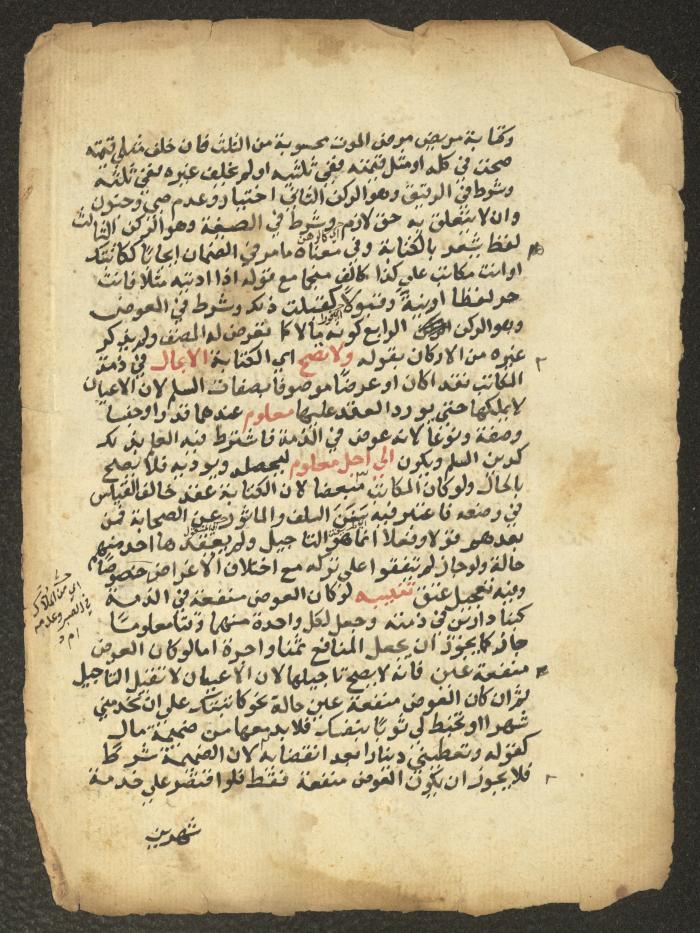 وكتابة مريض مرض الموت محسوبة من الثلث فان خلف مثلي قيمته
صحت في كله او مثل قيمته ففي ثلثيه او لم يخلف غيره ففي ثلثه
وشرط في الرقيق وهو الركن الثاني اختيار وعدم صبي وجنون
وان لا يتعلق به حق لازم وشرط في الصيغة وهو الركن الثالث
لفظ يشعر بالكتابة وفي معناه ما مر في الضمان ايجابا ككاتبتك
او انت مكاتب على كذا كالف منجما مع قوله اذا اديته مثلا فانت
حر لفظا او نية وقبولا كقبلت ذلك وشرط في العوض
وهو الركن الرابع كونه مالا كما تعرض له المصنف ولم يذكر
غيره من الاركان بقوله ولا تصح اي الكتابة الا بمال في ذمة
المكاتب نقدا كان او عرضا موصوفا بصفات السلم لان الاعيان
لا يملكها حتى يورد العقد عليها معلوم عندهما قدرا وجنسا
وصفة ونوعا لانه عوض في الذمة فاشترط فيه العلم بذلك
كدين السلم ويكون الى اجل معلوم ليحصله ويوديه فلا تصح
بالحال ولو كان المكاتب مبعضا لان الكتابة عقد خالف القياس
في وضعه فاعتبر فيه سنن السلف والماثور عن الصحابة فمن
بعدهم قولا وفعلا انما هو التاجيل ولم يعقدها احد منهم
حالة ولو جاز لم يتفقوا على تركه مع اختلاف الاغراض خصوصا
وفيه تعجيل عتق تنبيه لو كان العوض منفعة في الذمة
كبناء دارين في ذمته وجعل لكل واحدة منهما وقتا معلوما
جاز كما يجوز ان يجعل المنافع ثمنا واجرة اما لو كان العوض
منفعة عين فانه لا يصح تاجيلها لان الاعيان لا تقبل التاجيل
ثم ان كان العوض منفعة عين حالة نحو كاتبتك على ان تخدمني
شهرا او تخيط لي ثوبا بنفسك فلا بد معها من ضميمة مال
كقوله وتعطيني دينارا بعد انقضائه لان الضميمة شرط
فلا يجوز ان يكون العوض منفعة فقط فلو اقتصر على خدمة
شهرين